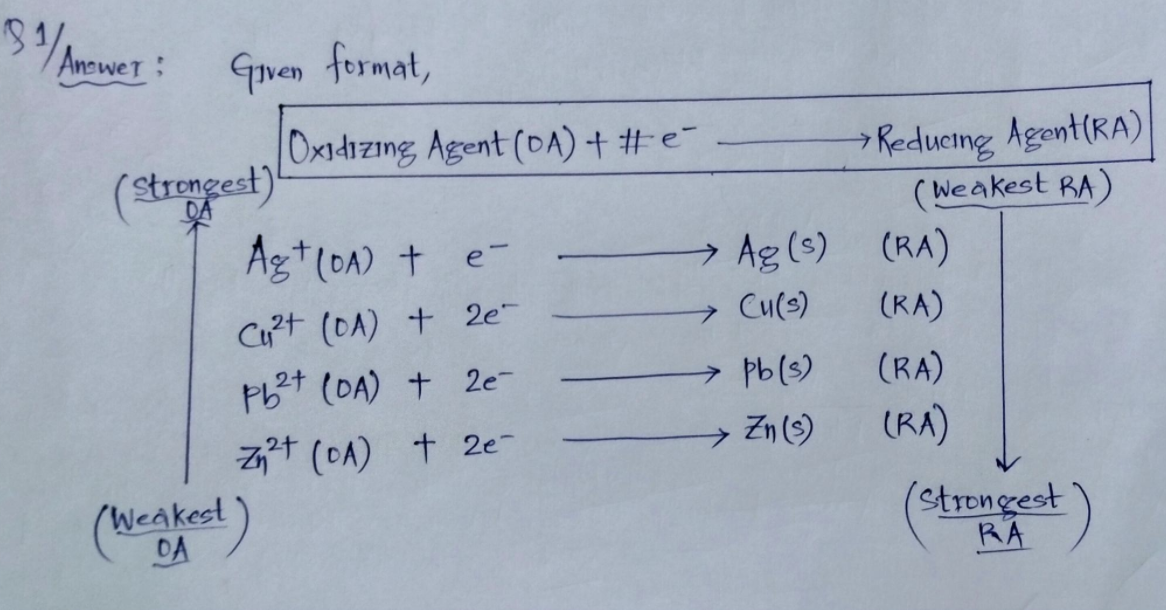 Q1/Answer: Given format,
Oxidizing Agent (OA) + # e⁻ ⟶ Reducing Agent(RA)
(Strongest OA)
(Weakest RA)
Ag⁺ (OA) + e⁻ ⟶ Ag(s) (RA)
Cu²⁺ (OA) + 2e⁻ ⟶ Cu(s) (RA)
Pb²⁺ (OA) + 2e⁻ ⟶ Pb(s) (RA)
Zn²⁺ (OA) + 2e⁻ ⟶ Zn(s) (RA)
(Weakest OA)
(Strongest RA)